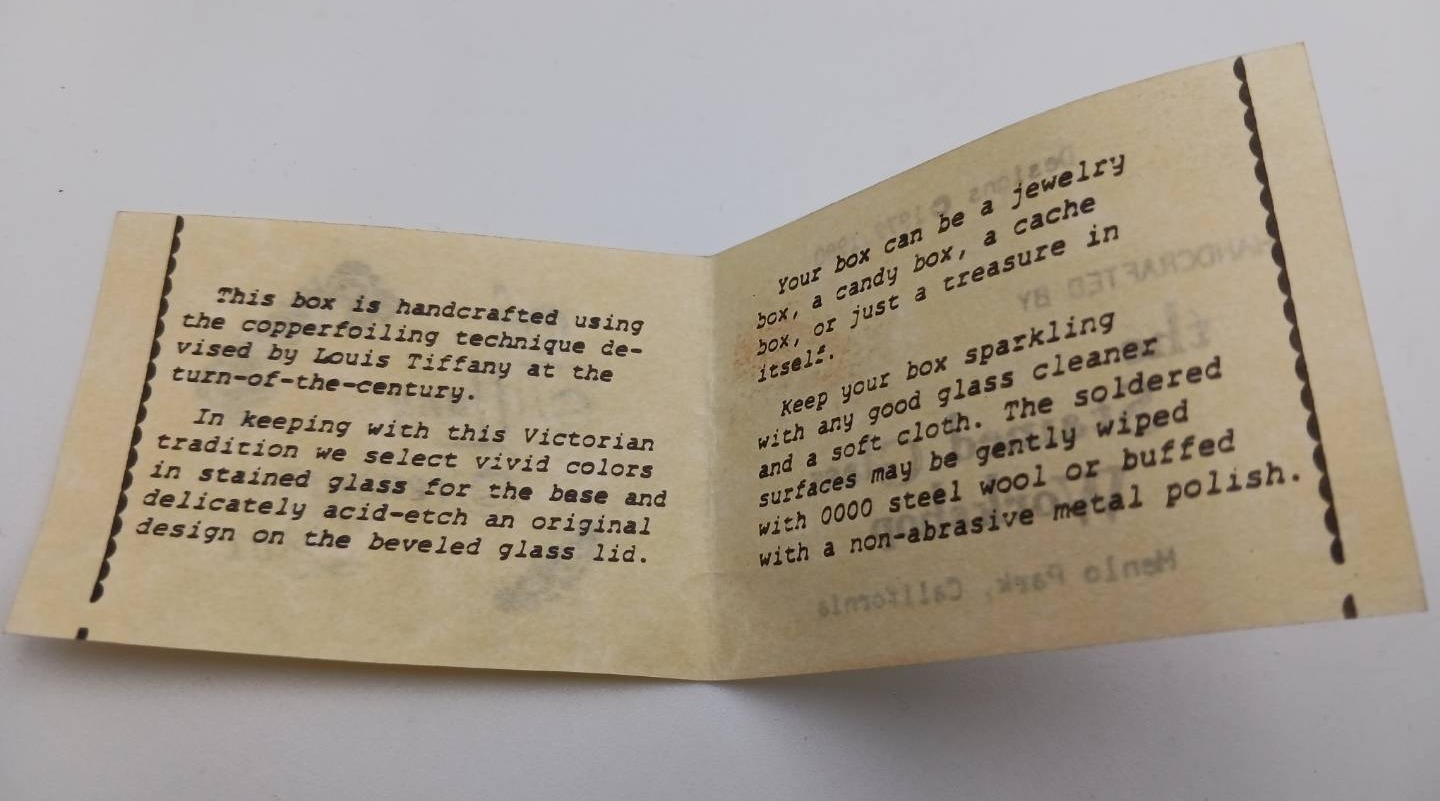 This box is handcrafted using
the copperfoiling technique de-
vised by Louis Tiffany at the
turn-of-the-century.
In keeping with this Victorian
tradition we select vivid colors
in stained glass for the base and
delicately acid-etch an original
design on the beveled glass lid.
Your box can be a jewelry
box, a candy box, a cache
box, or just a treasure in
itself.
Keep your box sparkling
with any good glass cleaner
and a soft cloth. The soldered
surfaces may be gently wiped
with 0000 steel wool or buffed
with a non-abrasive metal polish.
Designs ©
HANDCRAFTED BY
the
Menlo Park, California